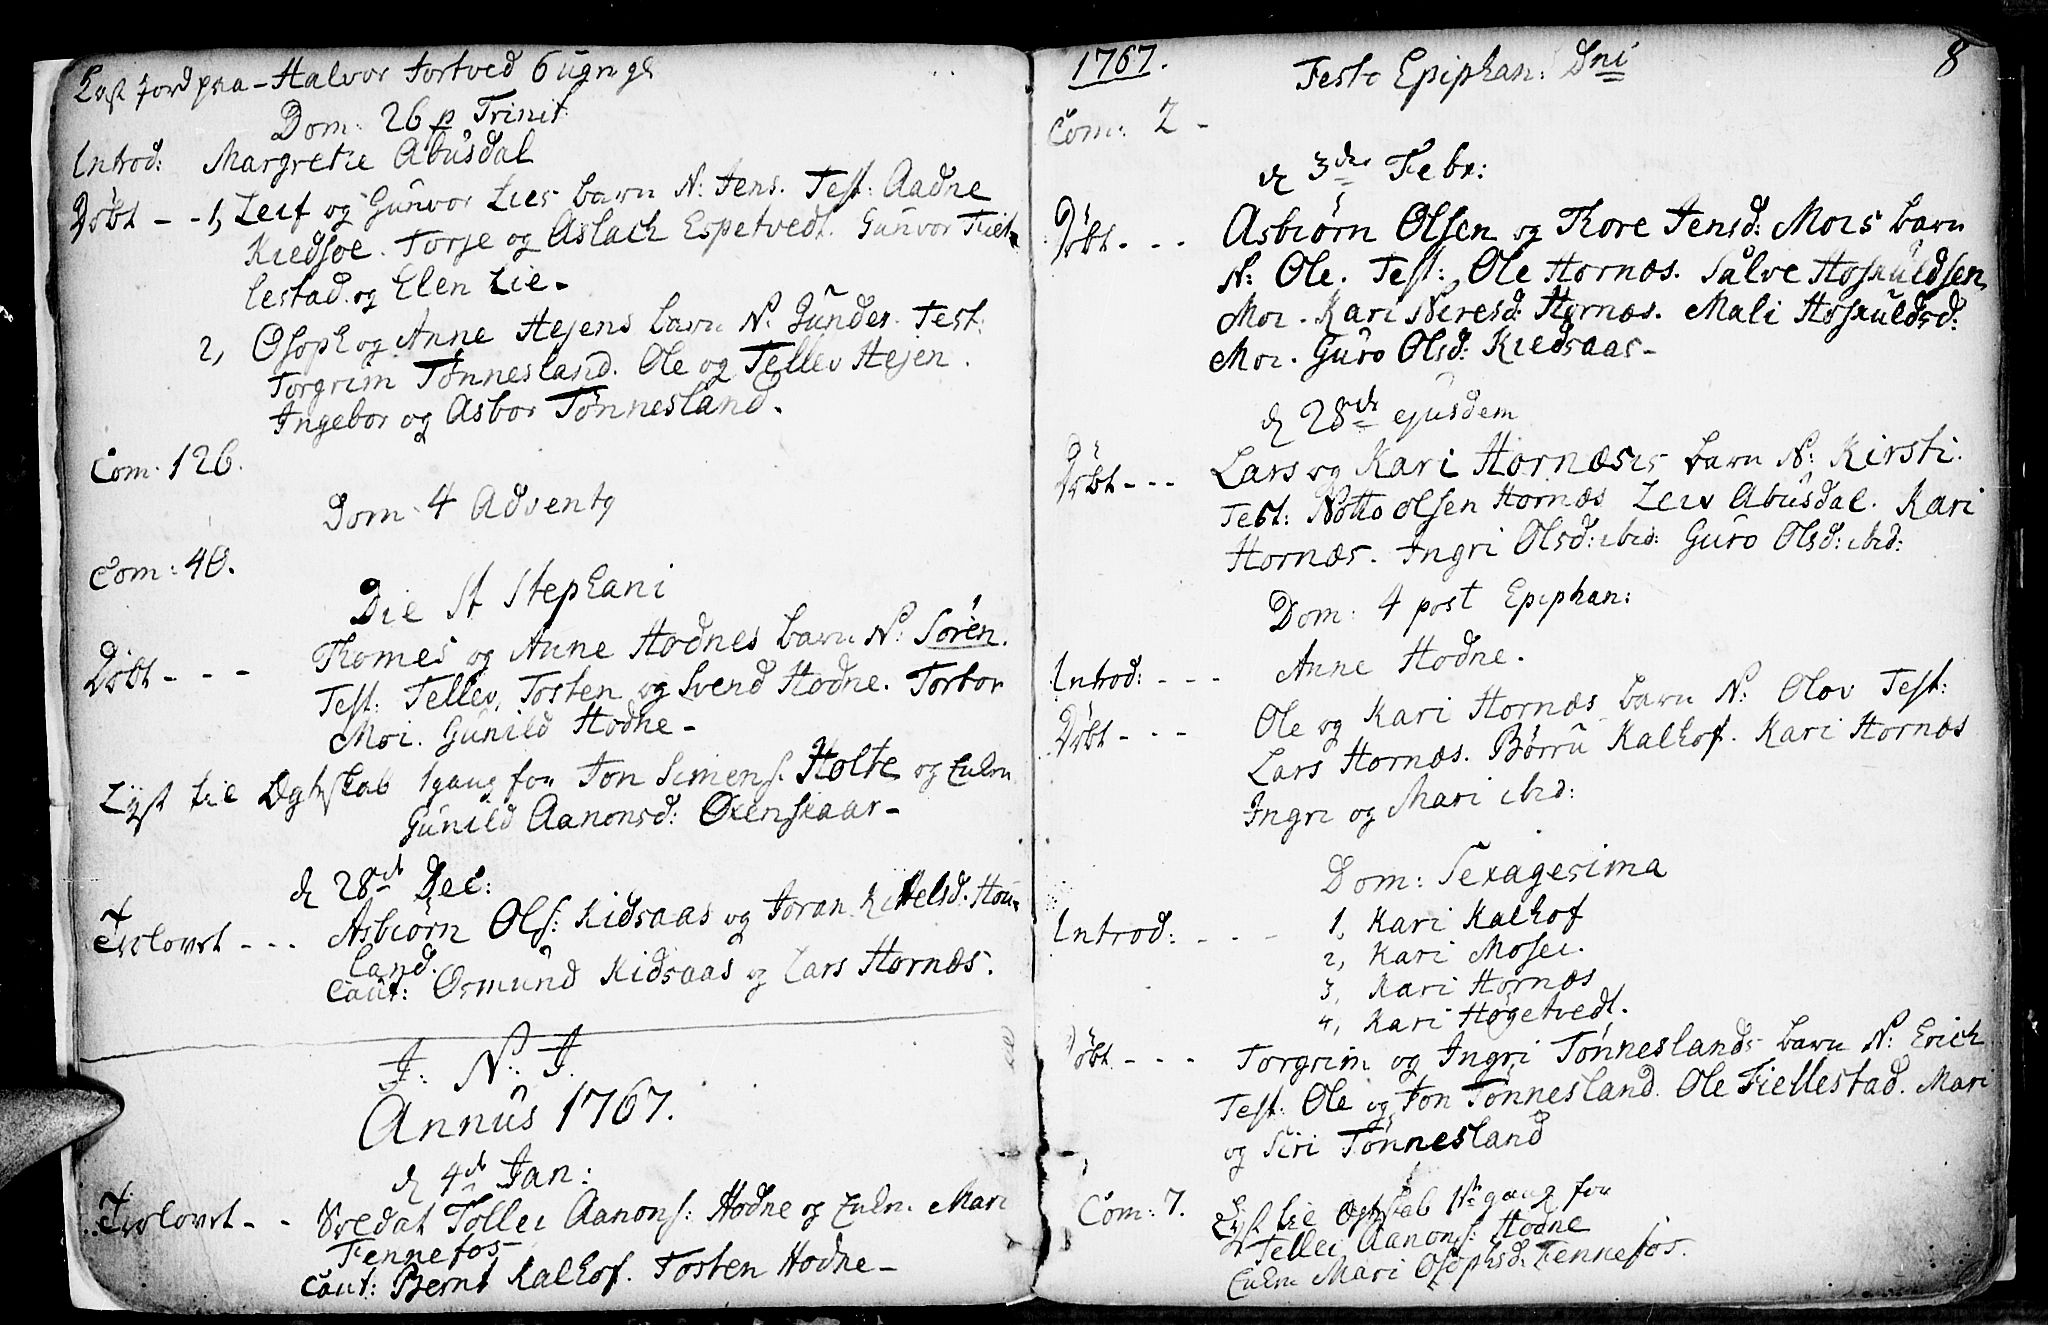 Kast jord paa - Halvor Tortved 6 ug: gl:
Dom: 26 p Trinit
Introd: Margrethe Abusdal
Døbt - - 1, Leif og Gunvor Lies barn N: Jens. Test: Aadne
Kiedsoe. Torje og Aslach Espetvedt. Gunvor Fiel-
lestad. og Elen Lie -
2, Osoph og Anne Hejens barn N: Gunder. Test:
Torgrim Tønnesland. Ole og Tellev Hejen.
Ingebor og Asbor Tønnesland.
Com: 126.
Dom: 4 Advent9
Com: 40.
Die St Stephani
Døbt - - - Thomes og Anne Hodnes barn N: Søren.
Test: Tellev, Tosten og Svend Hodne. Torbor
Moi. Gunild Hodne -
Lyst til Ægteskab 1 gang for Jon Simens: Holte og
Gunild Aanonsd: Oxenskaar -
d 28de Dec:
Trolovet - - - Asbiørn Ols: Kidsaas og Joran Kittelsd. Hou-
land.
Caut: Osmund Kidsaas og Lars Hornæs.
J: N: J.
Annus 1767.
d 4de Jan:
Trolovet - - Soldat Tollei Aanons: Hodne og Mari
Fennefos -
Caut: Bernt Kalhof. Tosten Hodne -
1767. Festo Epiphan: Dni 8
Com: 2 -
d 3die Febr:
Døbt - - - Asbiørn Olsen og Thore Jensd: Mois barn
N: Ole. Test: Ole Hornæs. Salve Hoskuldsen
Moi. Kari Neresd: Hornæs. Mali Hoskuldsd:
Moi. Guro Olsd: Kiedsaas -
d 28de ejusdem
Døbt - - - Lars og Kari Hornæses barn N: Kirsti.
Test: Notto Olsen Hornæs Leiv Abusdal. Kari
Hornæs. Ingri Olsd: ibid: Guro Olsd: ibid:
Dom: 4 post Epiphan:
Introd: - - - Anne Hodne.
Døbt - - - Ole og Kari Hornæs barn N: Olov Test:
Lars Hornæs. Børru Kalhof. Kari Hornæs
Ingri og Mari ibid:
Dom: Sexagesima
Introd: - - - 1, Kari Kalhof
2, Kari Mosei.
3, Kari Hornæs
4, Kari Høgetvedt.
Døbt - - - Torgrim og Ingri Tønneslands barn N: Erich
Test: Ole og Jon Tønnesland. Ole Fiellestad. Mari
og Siri Tønnesland
Com: 7. Lyst til Ægteskab 1ste gang for
Tellei Aanons: Hodne
Mari Osophsd: Fennefos.